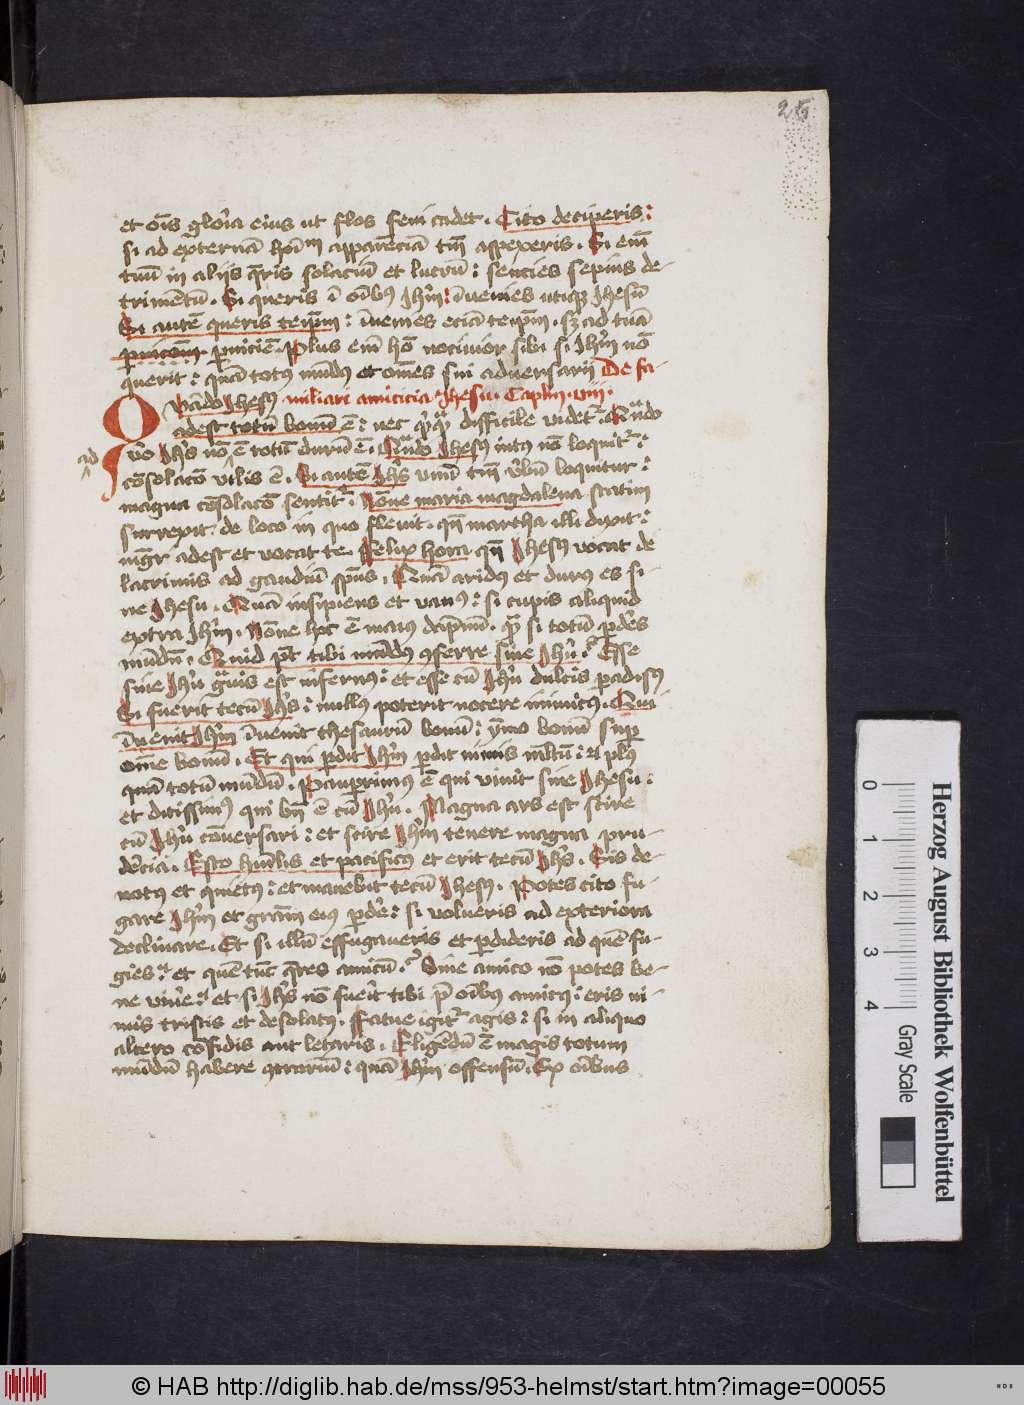 25
et oīs gloria eius ut flos feni cadet. Cito deciperis:
si ad externā hoīm apparēciā tm̄ aspexeris. Si em̄
tuū in aliis q̄ris solaciū et lucrū: sencies sepius de-
trimētū. Si queris ī oībꝰ Ihm̄: īuenies utiqꝫ Ihesū
Si autē queris teip̄m: īuenies eciā teip̄m. sꝫ ad tuā
p̄niciē. Plus em̄ hō nociuior sibi si Ihm̄ nō
querit: quā totꝰ mūdꝰ et om̄es sui adversarii De fa-
Quādo Ihesꝰ miliari amicicia Ihesu. Caplm. viii.
adest totū bonū ē: nec difficile videt᷑. Qn̄do
ad
v̄o Ihs̄ nō ē totū durū ē. Qn̄do Ihesꝰ intꝰ nō loquit᷑:
cōsolacō vilis ē. Si autē Ihs̄ vnū tm̄ v̄bū loquitur:
magna cōsolacō sentit᷑. Nōne maria magdalena statim
surrexit de loco in quo fleuit. qn̄ martha illi dixit:
mḡr adest et vocat te. Felix hora qn̄ Ihesꝰ vocat de
lacrimis ad gaudiū sp̄us. Quā aridꝰ et durꝰ es si-
ne Ihesu. Quā insipiens et vanꝰ: si cupis aliquid
extra Ihm̄. Nōne hoc ē maiꝰ dāpnū. q̄ si totū p̄des
mūdū. Quid pt̄ tibi mūdꝰ ꝯferre sine Ihū. Esse
sine Ihū gͣuis est infernꝰ: et esse cū Ihū dulcis padisꝰ
Si fuerit tecū Ihs̄: nullꝰ poterit nocere inimicꝰ. Qui
īuenit Ihm̄ īuenit thesaurū bonū: ymo bonū sup̄
om̄e bonū. Et qui p̄dit Ihm̄ p̄dit nimis ml̄tū: et plꝰ
quā totū mūdū. Paup̄rimꝰ ē qui viuit sine Ihesu:
et ditissimꝰ qui bn̄ ē cū Ihū. Magna ars est scire
cū Ihū cōuersari: et scire Ihm̄ tenere magna pru-
dēcia. Esto humlis et pacificꝰ et erit tecū Ihs̄. Eris de-
uotꝰ et quietꝰ: et manebit tecū Ihesꝰ. Potes cito fu-
gare Ihm̄ et grām eiꝰ p̄de: si volueris ad exteriora
declinare. Et si illū effugaueris et p̄dideris ad quē fu-
gies: et quē tūc q̄res amicū. Sine amico nō potes be-
ne viue: et si Ihs̄ nō fuerit tibi p̄ oībꝰ amicꝰ: eris ni-
mis tristis et desolatꝰ. Fatue igit᷑ agis: si in aliquo
altero cōfidis aut letaris. Eligēdū ē magis totum
mūdū habere ꝯtrariū: quā Ihm̄ offensū. Ex oībus
0 1 2 3 4
Gray Scale
Herzog August Bibliothek Wolfenbüttel
© HAB http://diglib.hab.de/mss/953-helmst/start.htm?image=00055